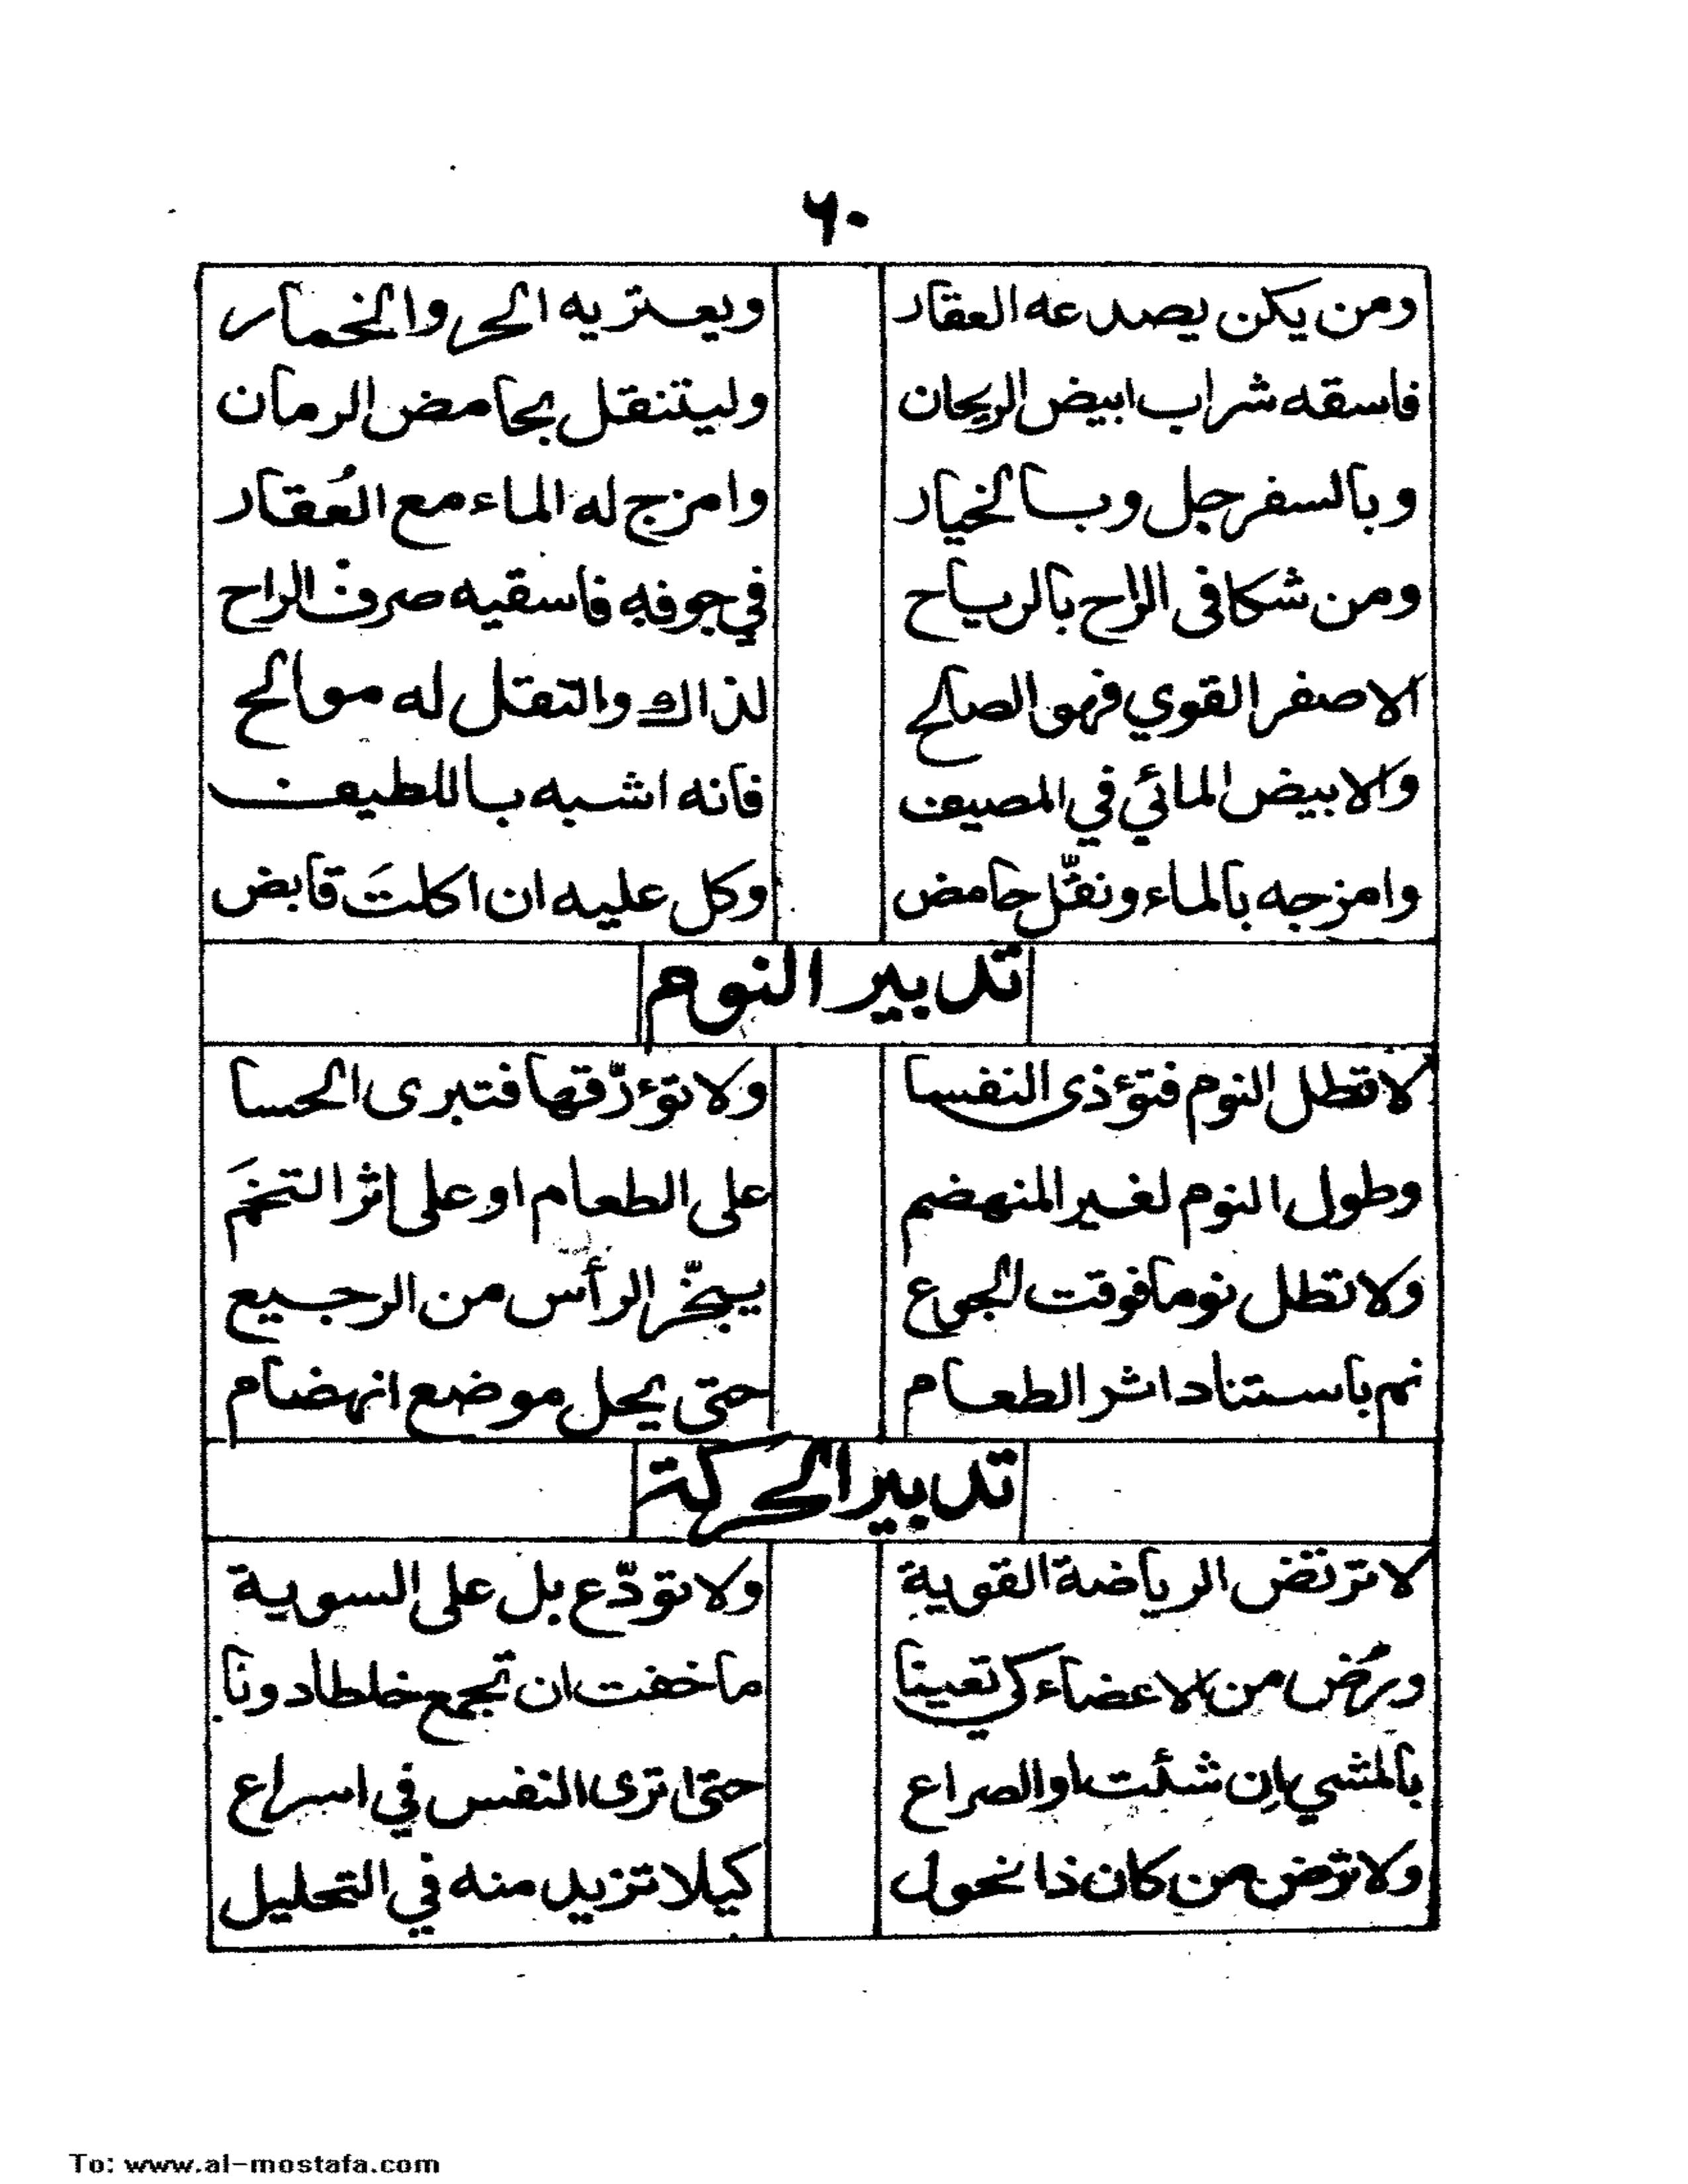 ٦٠
ومن يكن يصدعه العقار ويعتريه الحر والخمار
فاسقه شراب ابيض الريحان وليتنقل بحامض الرمان
وبالسفرجل وبالخيار وامزج له الماء مع العُقار
ومن شكا فى الراح بالرياح في جوفه فاسقيه صرف الراح
الاصفر القوي فهو الصالح لذاك والتنقل له موالح
والابيض المائي في المصيف فانه اشبه باللطيف
وامزجه بالماء ونقّل حامض وكل عليه ان اكلتَ قابض
تدبير النوم
لا تطل النوم فتؤذى النفسا ولا تؤرّقها فتبرى الحسا
وطول النوم لغير المنهضم على الطعام او على اثر التخَم
ولا تطل نوما فوقت الجوع يبخّر الرأس من الرجيع
نم باستناد اثر الطعام حتى يحل موضع انهضام
تدبير الحركة
لا ترتض الرياضة القوية ولا تودّع بل على السوية
ورُض من الاعضاء كي تعينا ما خفت ان تجمع خلطا دونا
بالمشي إن شئت او الصراع حتى ترى النفس في اسراع
ولا ترُض من كان ذا نحول كيلا تزيد منه في التحليل
To: www.al-mostafa.com